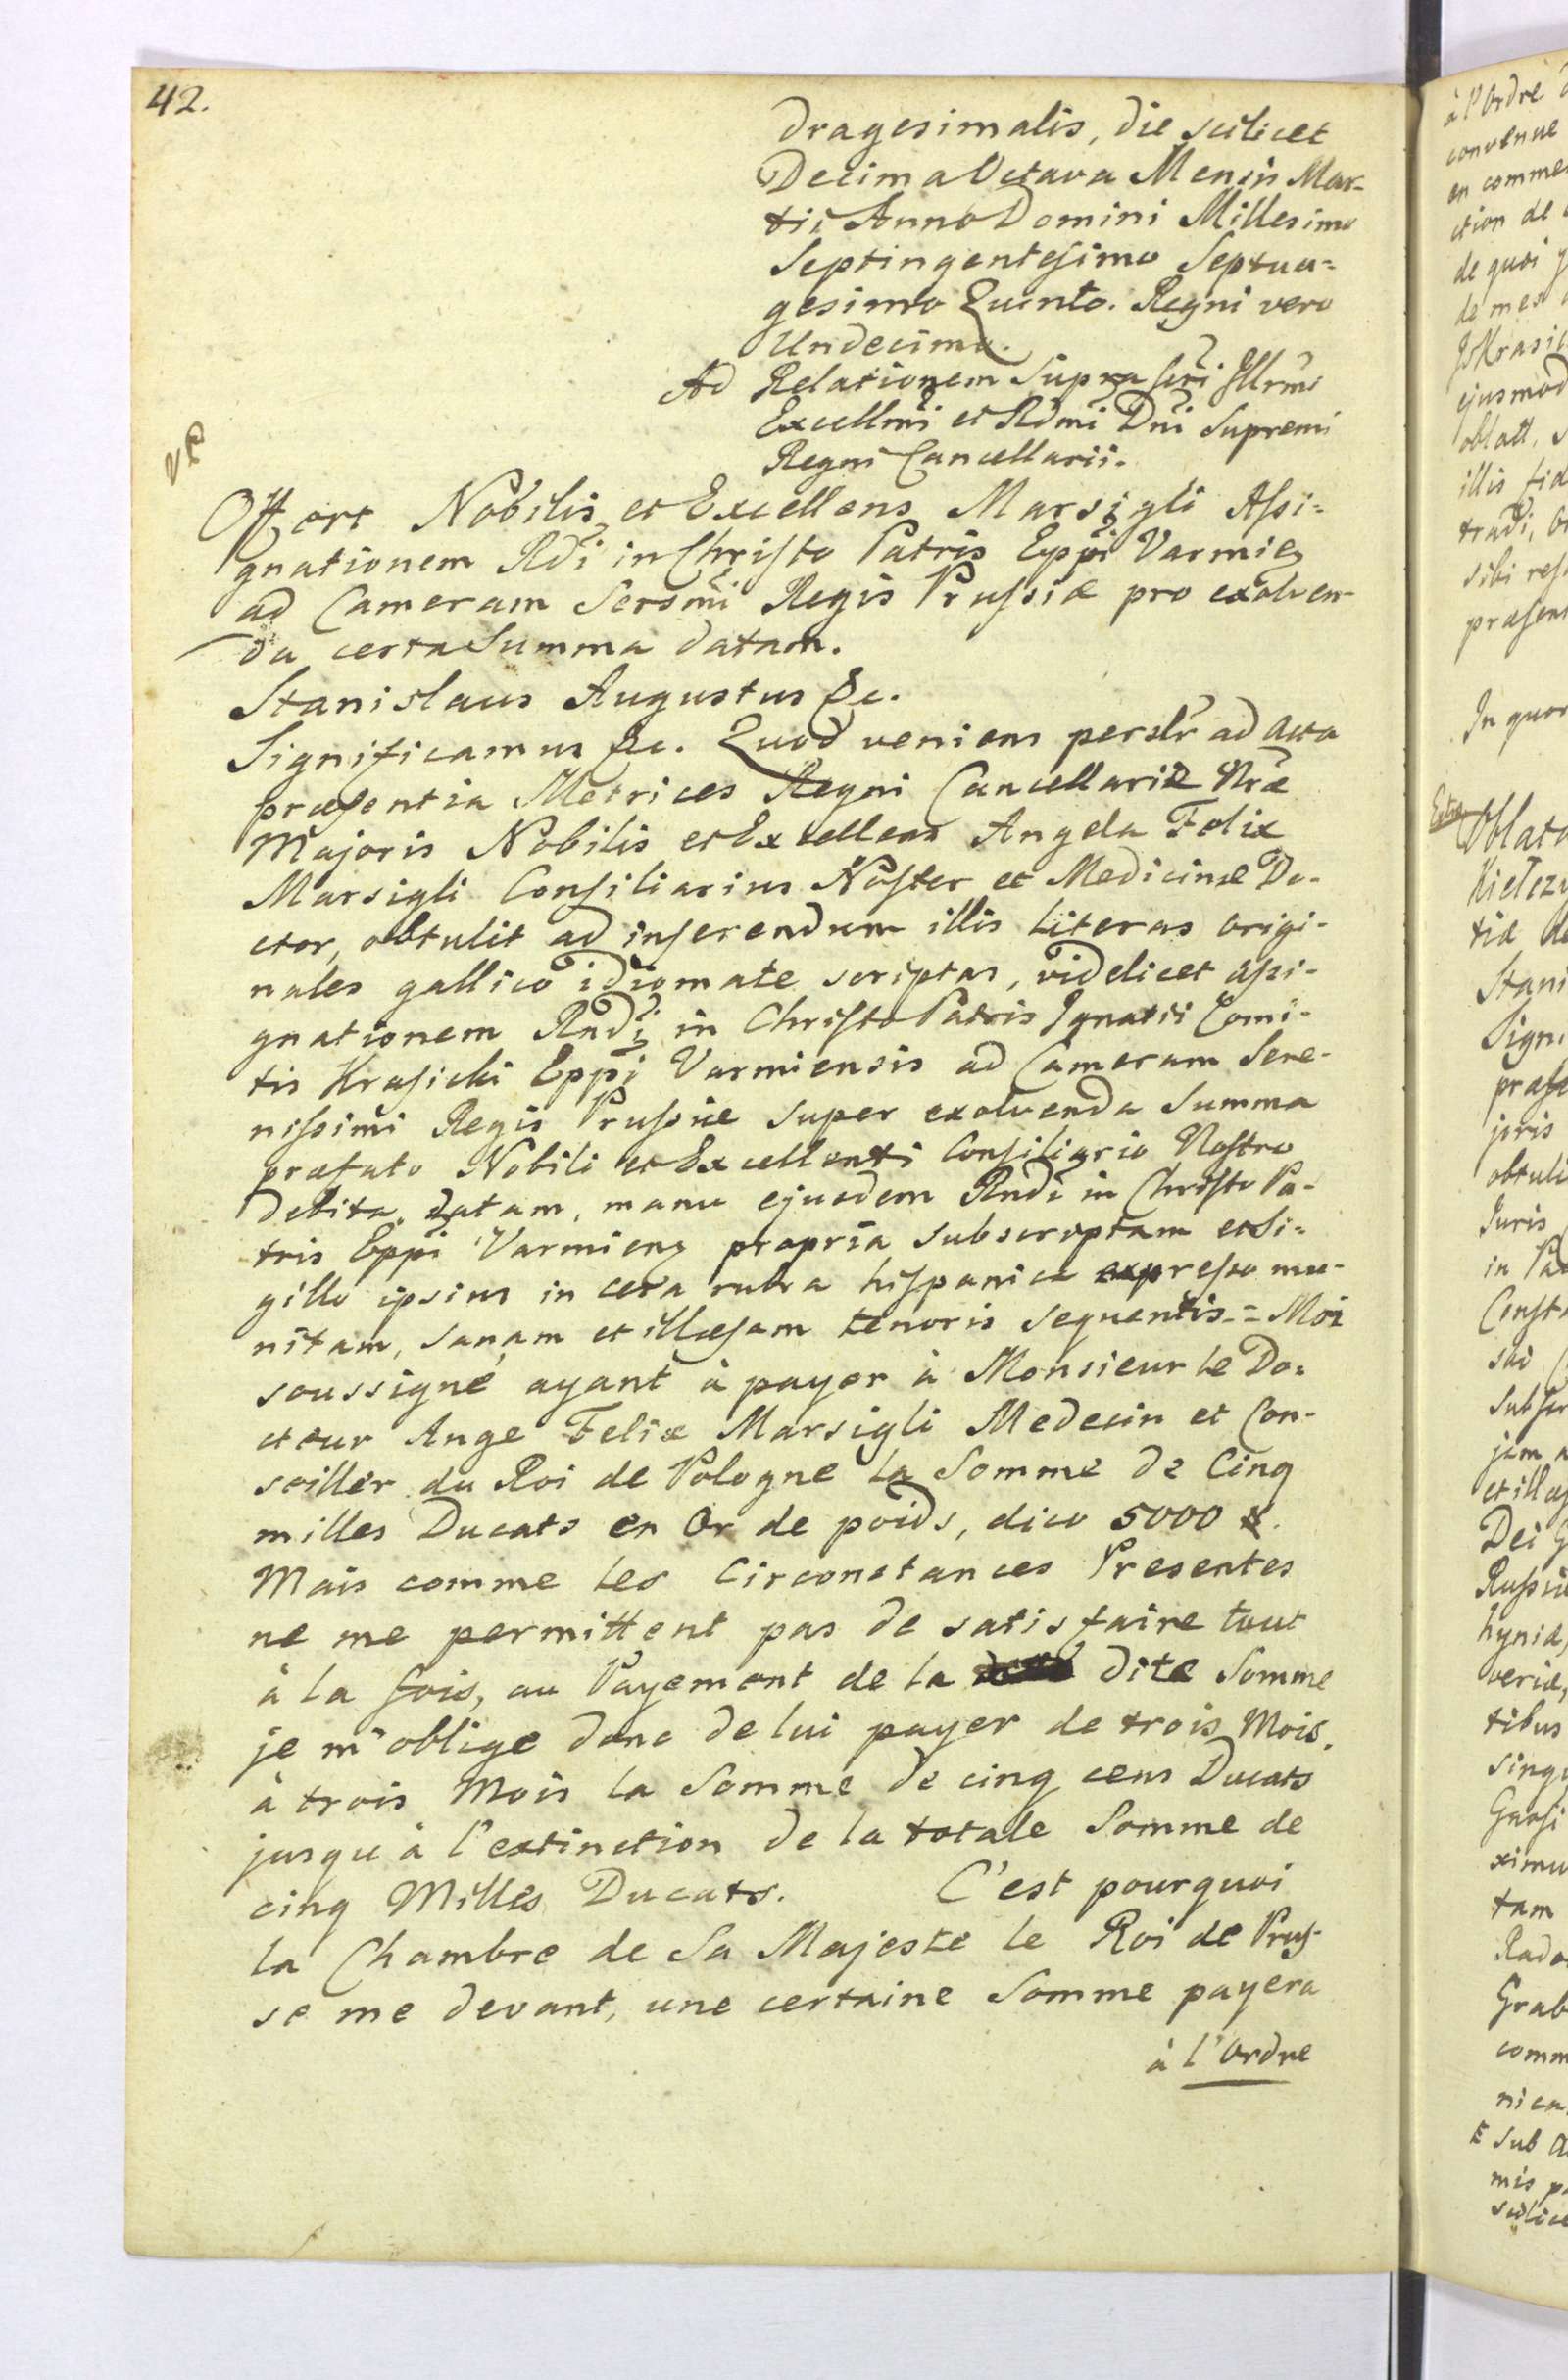 42.
dragesimalis, die scilicet
Decima Octava Mensis Mar-
tii Anno Domini Millesimo
Septingentesimo Septua=
gesimo Quinto. Regni vero
Undecimo.
Ad Relationem Supra scri Illrmi
Excellmi et Rdmi Dni Supremi
Regni Cancellarii.
Offert Nobilis et Excellens Marsigli Assi=
gnationem Rdi in Christo Patris Eppi Varmien
ad Cameram Sersmi Regis Prussiæ pro exolven-
da certa Summa datam.
Stanislaus Augustus &c.
Significamus &c. Quod veniens persltr ad Acta
præsentia Metrices Regni Cancellariæ Nræ
Majoris Nobilis et Excellens Angela Felix
Marsigli Consiliarius Noster et Medicinæ Do-
ctor, obtulit ad inserendum illis literas origi-
nales gallico idiomate scriptas, videlicet assi-
gnationem Rndi in Christo Patris Ignatii Comi-
tis Krasicki Eppi Varmiensis ad Cameram Sere-
nissimi Regis Prussiæ super exolvenda Summa
præfato Nobili et Excellenti Consiliario Nostro
debita datam, manu ejusdem Rndi in Christo Pa-
tris Eppi Varmien propria subscriptam et Si=
gillo ipsius in cera rubra hispanica expresso mu-
nitam, sanam et illæsam tenoris sequentis = Moi
soussigné ayant à payer à Monsieur le Do=
cteur Ange Felix Marsigli Medecin et Con-
seiller du Roi de Pologne la Somme de Cinq
milles Ducats en Or de poids, dico 5000 #.
Mais comme les Circonstances Presentes
ne me permittent pas de satisfaire tout
à la fois, au Payement de la dite Somme
je m'oblige donc de lui payer de trois Mois
à trois Mois la Somme de cinq cens Ducats
jusqu à l'extinction de la totale Somme de
cinq Milles Ducats. C'est pourquoi
la Chambre de Sa Majeste le Roi de Prus-
se me devant, une certaine Somme payera
à l'Ordre